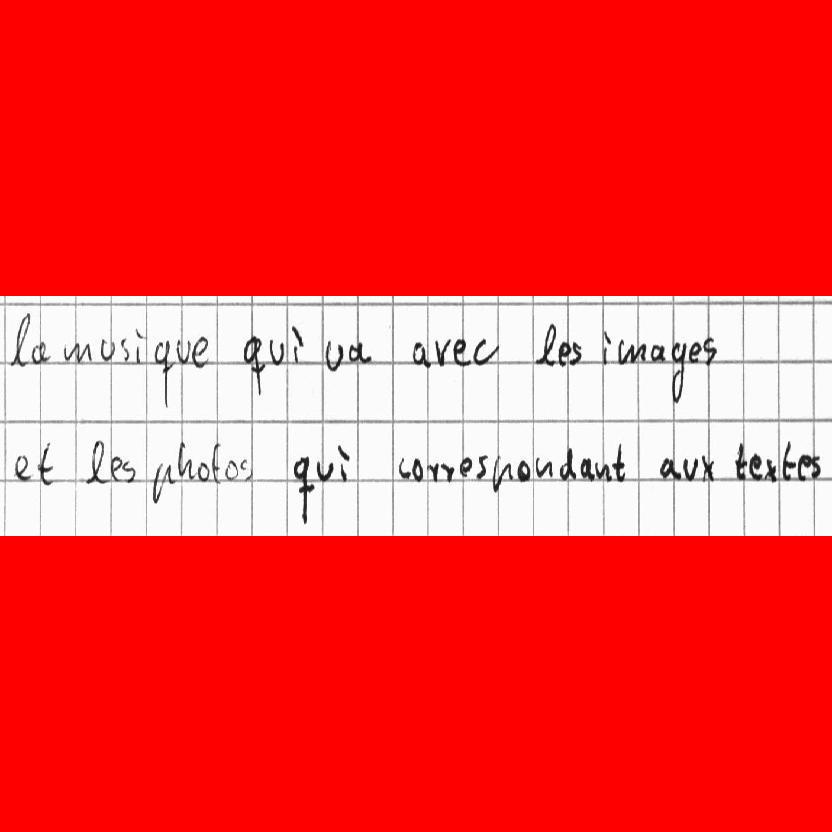 la musique qui va avec les images
et les photos qui correspondant aux textes